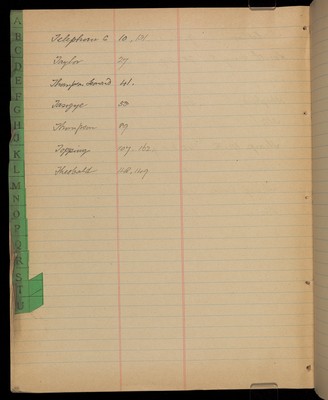 A
B
C
D
E
F
G
H
K
L
M
N
O
P
Q
R
S
T
Telephone Co 10,
Taylor 27
Thompson Leonard 41.
Tangye
Thompson 89
Topping 107,
Theobald